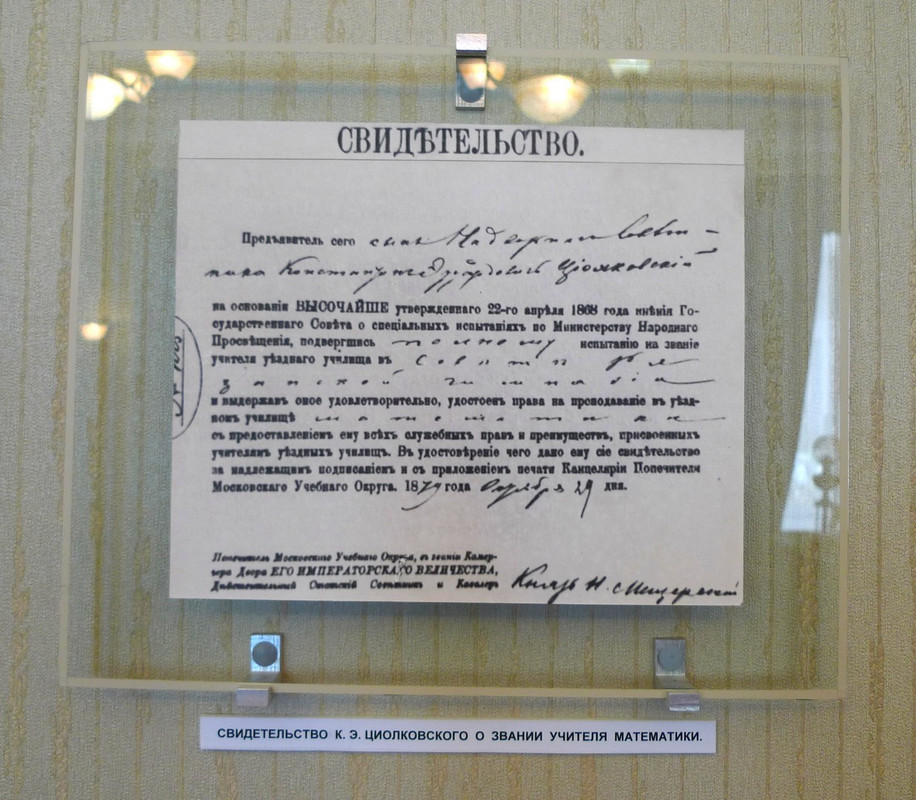 СВИДѢТЕЛЬСТВО.
Предъявитель сего сынъ Надворнаго Совѣт-
ника Константинъ Эдуардовичъ Ціолковскій
на основаніи ВЫСОЧАЙШЕ утвержденнаго 22-го апрѣля 1868 года мнѣнія Го-
сударственнаго Совѣта о спеціальныхъ испытаніяхъ по Министерству Народнаго
Просвѣщенія, подвергшись полному испытанію на званіе
учителя уѣзднаго училища въ Совѣтѣ Ря
занской гимназіи
и выдержавъ оное удовлетворительно, удостоенъ права на преподаваніе въ уѣзд-
номъ училищѣ математики
съ предоставленіемъ ему всѣхъ служебныхъ правъ и преимуществъ, присвоенныхъ
учителямъ уѣздныхъ училищъ. Въ удостовѣреніе чего дано ему сіе свидѣтельство
за надлежащимъ подписаніемъ и съ приложеніемъ печати Канцеляріи Попечителя
Московскаго Учебнаго Округа. 1879 года Октября 29 дня.
Попечитель Московскаго Учебнаго Округа, въ званіи Камер-
гера Двора ЕГО ИМПЕРАТОРСКАГО ВЕЛИЧЕСТВА,
Дѣйствительный Статскій Совѣтникъ и Кавалеръ Князь Н. Мещерскій
СВИДЕТЕЛЬСТВО К. Э. ЦИОЛКОВСКОГО О ЗВАНИИ УЧИТЕЛЯ МАТЕМАТИКИ.